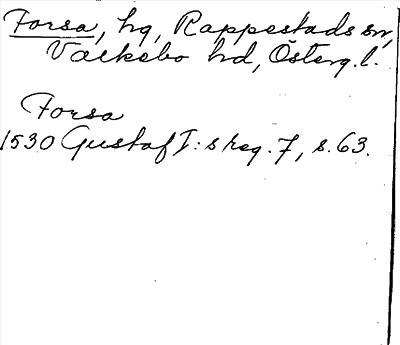 Forsa, hg, Rappestads sn,
Valkebo hd, Österg.l.
Forsa
1530 Gustaf I:s reg. 7, s. 63.